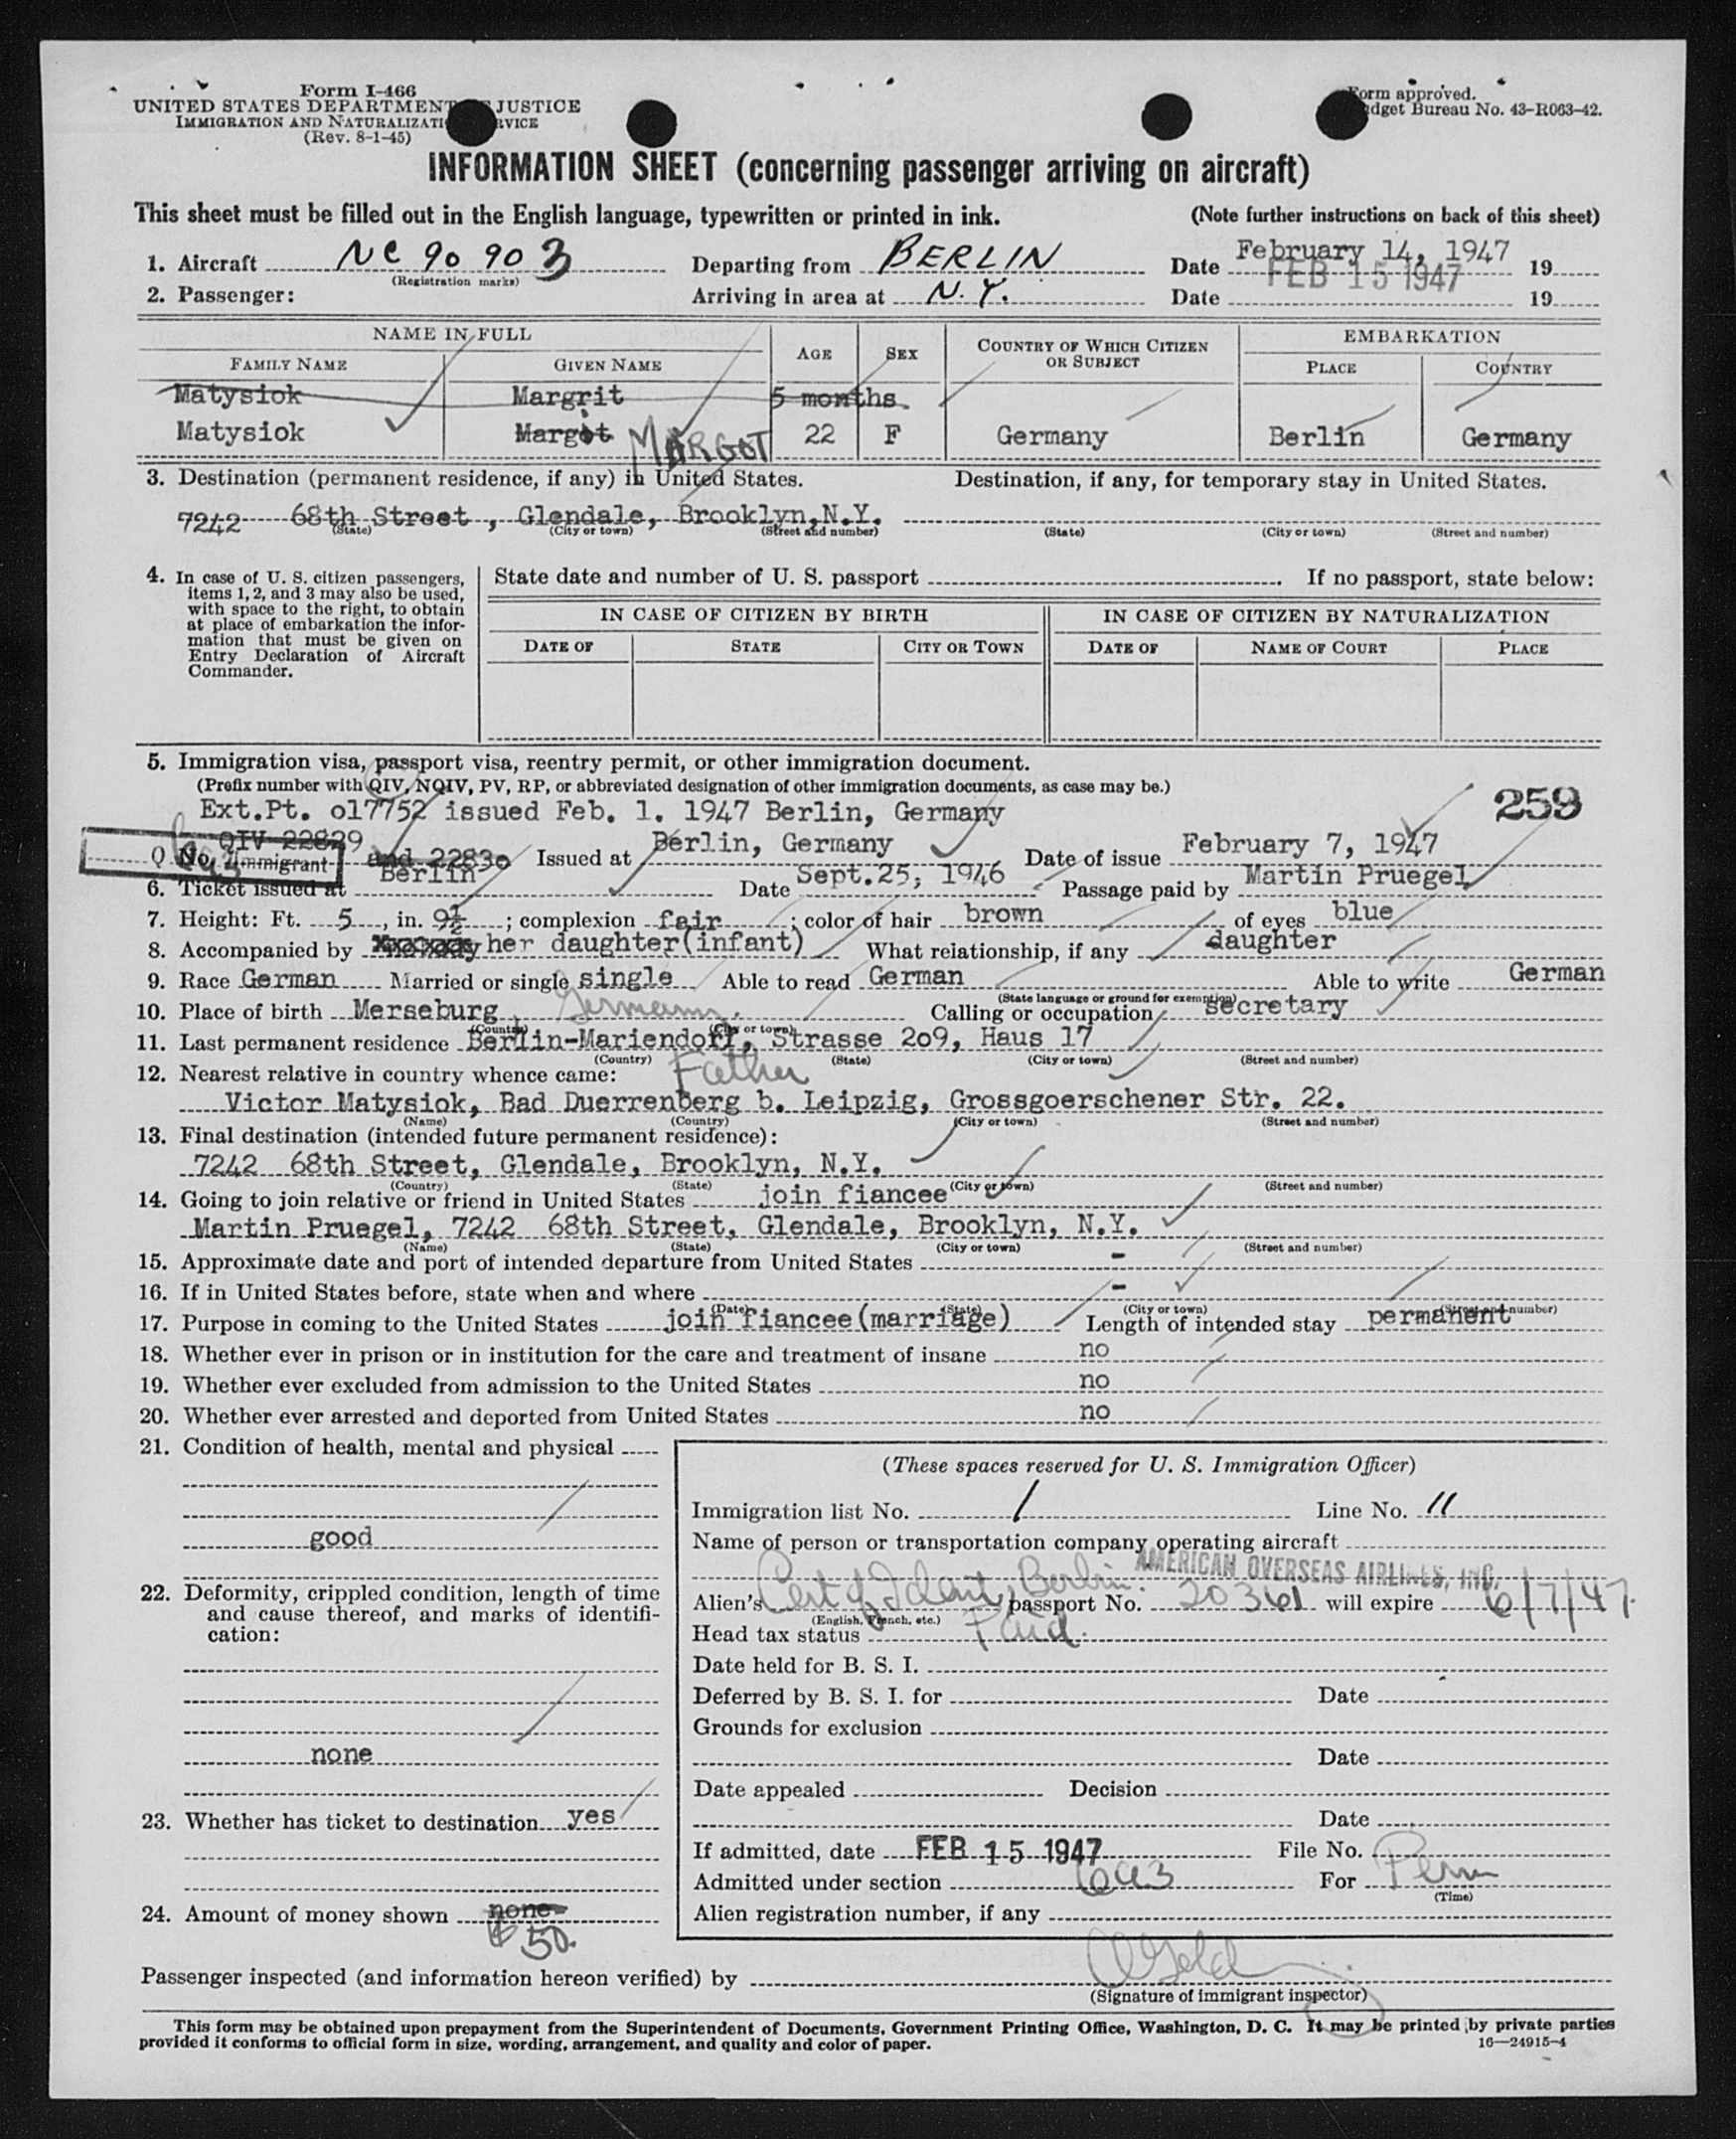 Form I-466
UNITED STATES DEPARTMENT JUSTICE
IMMIGRATION AND NATURALIZATI RVICE
(Rev. 8-1-45)
Form approved.
dget Bureau No. 43-R063-42.
INFORMATION SHEET (concerning passenger arriving on aircraft)
This sheet must be filled out in the English language, typewritten or printed in ink. (Note further instructions on back of this sheet)
1. Aircraft NC 90 903 Departing from BERLIN Date February 14, 1947 19
(Registration marks)
2. Passenger: Arriving in area at N.Y. Date FEB 15 1947 19
NAME IN FULL AGE SEX COUNTRY OF WHICH CITIZEN OR SUBJECT EMBARKATION
FAMILY NAME GIVEN NAME PLACE COUNTRY
Matysiok Margrit 5 months
Matysiok Margot MARGOT 22 F Germany Berlin Germany
3. Destination (permanent residence, if any) in United States. Destination, if any, for temporary stay in United States.
7242 68th Street , Glendale, Brooklyn,N.Y.
(State) (City or town) (Street and number) (State) (City or town) (Street and number)
4. In case of U. S. citizen passengers,
items 1, 2, and 3 may also be used,
with space to the right, to obtain
at place of embarkation the infor-
mation that must be given on
Entry Declaration of Aircraft
Commander.
State date and number of U. S. passport . If no passport, state below:
IN CASE OF CITIZEN BY BIRTH IN CASE OF CITIZEN BY NATURALIZATION
DATE OF STATE CITY OR TOWN DATE OF NAME OF COURT PLACE
5. Immigration visa, passport visa, reentry permit, or other immigration document.
(Prefix number with QIV, NQIV, PV, RP, or abbreviated designation of other immigration documents, as case may be.)
Ext.Pt. o17752 issued Feb. 1. 1947 Berlin, Germany 259
QIV 22829
Q No. Immigrant and 2283o Issued at Berlin, Germany Date of issue February 7, 1947
6. Ticket issued at Berlin Date Sept.25, 1946 Passage paid by Martin Pruegel
7. Height: Ft. 5, in. 9½; complexion fair; color of hair brown of eyes blue
8. Accompanied by her daughter(infant) What relationship, if any daughter
9. Race German Married or single single Able to read German Able to write German
(State language or ground for exemption)
10. Place of birth Merseburg Germany. Calling or occupation secretary
(Country) (City or town)
11. Last permanent residence Berlin-Mariendorf, Strasse 2o9, Haus 17
(Country) (State) (City or town) (Street and number)
12. Nearest relative in country whence came: Father
Victor Matysiok, Bad Duerrenberg b. Leipzig, Grossgoerschener Str. 22.
(Name) (Country) (City or town) (Street and number)
13. Final destination (intended future permanent residence):
7242 68th Street, Glendale, Brooklyn, N.Y.
(Country) (State) (City or town) (Street and number)
14. Going to join relative or friend in United States join fiancee
Martin Pruegel, 7242 68th Street, Glendale, Brooklyn, N.Y.
(Name) (State) (City or town) (Street and number)
15. Approximate date and port of intended departure from United States -
16. If in United States before, state when and where -
(Date) (State) (City or town) (Street and number)
17. Purpose in coming to the United States join fiancee(marriage) Length of intended stay permanent
18. Whether ever in prison or in institution for the care and treatment of insane no
19. Whether ever excluded from admission to the United States no
20. Whether ever arrested and deported from United States no
21. Condition of health, mental and physical
good
22. Deformity, crippled condition, length of time
and cause thereof, and marks of identifi-
cation:
none
23. Whether has ticket to destination yes
24. Amount of money shown none
$ 50.
(These spaces reserved for U. S. Immigration Officer)
Immigration list No. 1 Line No. 11
Name of person or transportation company operating aircraft
AMERICAN OVERSEAS AIRLINES, INC.
Alien's Cert of Ident, Berlin. passport No. 20361 will expire 6/7/47.
(English, French, etc.)
Head tax status Paid.
Date held for B. S. I.
Deferred by B. S. I. for Date
Grounds for exclusion
Date
Date appealed Decision
Date
If admitted, date FEB 15 1947 File No.
Admitted under section 6a3 For Perm
(Time)
Alien registration number, if any
Passenger inspected (and information hereon verified) by
(Signature of immigrant inspector)
This form may be obtained upon prepayment from the Superintendent of Documents, Government Printing Office, Washington, D. C. It may be printed by private parties
provided it conforms to official form in size, wording, arrangement, and quality and color of paper. 16—24915-4